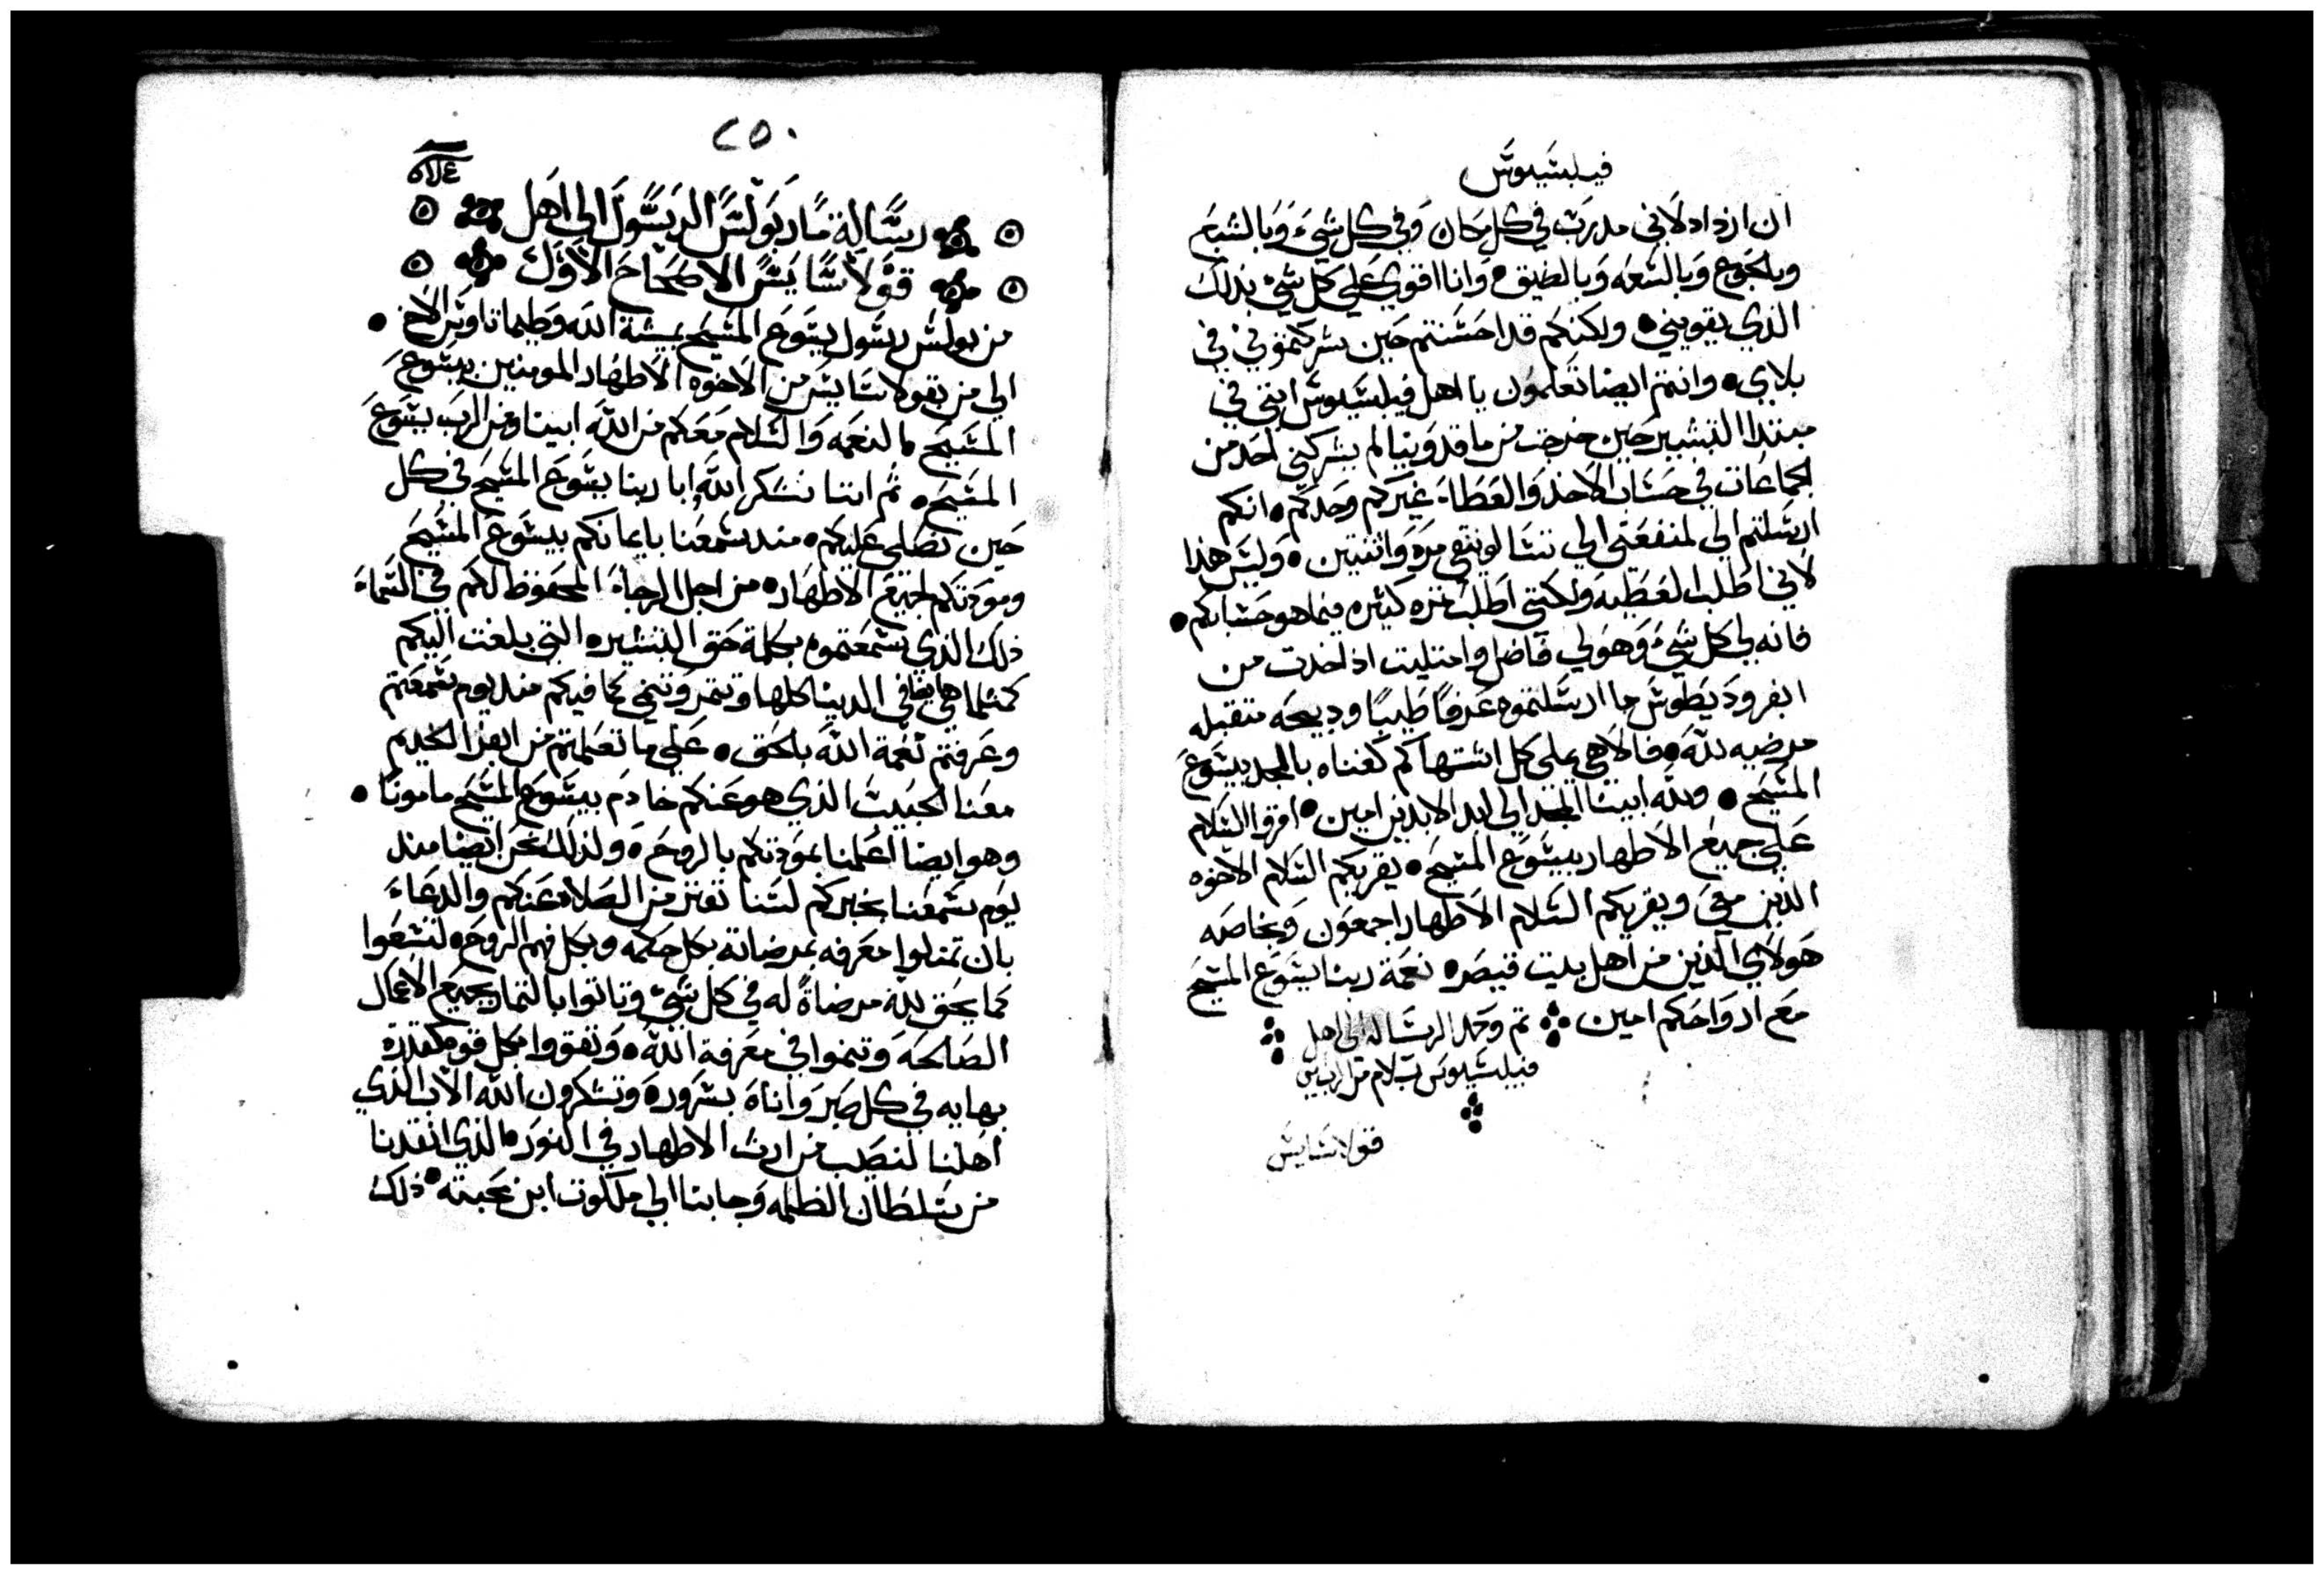 فيلبسيوس
ان ازداد لاني مدرب في كل مكان وفي كل شيء وبالشبع
وبلجوع وبالسعه وبالضيق وانا اقوي علي كل شي بذلك
الذي يقويني • ولكنكم قد احسنتم حين شركتموني في
بلاي • وانتم ايضا تعلمون يا اهل فيلبسيوس انني في
مبتدا التبشير حين خرجت من ماقدونيا لم يشركني احد من
الجماعات في حساب الاخذ والعطاء غيركم وحدكم • انكم
ارسلتم الي لمنفعتي الي تسالونيقي مره واثنتين • وليس هذا
لاني اطلب العطيه ولكنني اطلب ثمره كثيره فيما هو حسابكم •
فانه لي كل شيء وهو لي فاضل وامتليت اذ اخدت من
ابفروديطوس ما ارسلتموه عرفًا طيبًا ودبيحه متقبله
مرضيه لله • فالاهي يملي كل اشتهاكم كغناه بالمجد بيسوع
المسيح • ولله ابينا المجد الي ابد الابدين امين • اقروا السلام
علي جميع الاطهار بيسوع المسيح • يقريكم السلام الاخوه
الذين معي ويقريكم السلام الاطهار اجمعون وبخاصه
هولاي الذين من اهل بيت قيصر • نعمة ربنا يسوع المسيح
مع ارواحكم امين ⁘ تم وكمل الرساله الي اهل ⁘
فيلبسيوس بسلام من الرب امين
⁘
قولاسايس
٢٥٠
رسالة مار بولس الرسول الي اهل
قولاسايس الاصحاح الاول
من بولس رسول يسوع المسيح بمشية الله وطيماتاوس الاخ •
الي من بقولاسايس من الاخوه الاطهار المومنين بيسوع
المسيح • النعمه والسلام معكم من الله ابينا ومن الرب يسوع
المسيح • ثم اننا نشكر الله ابا ربنا يسوع المسيح في كل
حين نصلي عليكم • مند سمعنا بايمانكم بيسوع المسيح
ومودتكم لجميع الاطهار • من اجل الرجاء المحفوظ لكم في السماء
ذلك الذي سمعتموه بكلمة حق التبشير • التي بلغت اليكم
كمثلما هي في الدنيا كلها وتثمر وتنمي كما فيكم مند يوم سمعتم
وعرفتم نعمة الله بالحق • علي ما تعلمتم من ابفرا الخديم
معنا الحبيب الذي هو عنكم خادم بيسوع المسيح مامونًا •
وهو ايضا اعلمنا بمودتكم بالروح • ولذلك نحن ايضا مند
يوم سمعنا بخبركم لسنا نفتر من الصلاه عنكم والدعاء
بان تمتلوا معرفه بمرضاته بكل حكمه وبكل فهم الروح • لتسعوا
كما يحق لله مرضاةً له في كل شيء وتاتوا بالثمار بجميع الاعمال
الصالحه وتنموا في معرفة الله • وتقووا بكل قوه كقدرة
بهايه في كل صبر واناة بسرور • وتشكرون الله الاب الذي
اهلنا لنصيب من ارث الاطهار في النور • الذي انقدنا
من سلطان الظلمه وجابنا الي ملكوت ابن محبته • ذلك